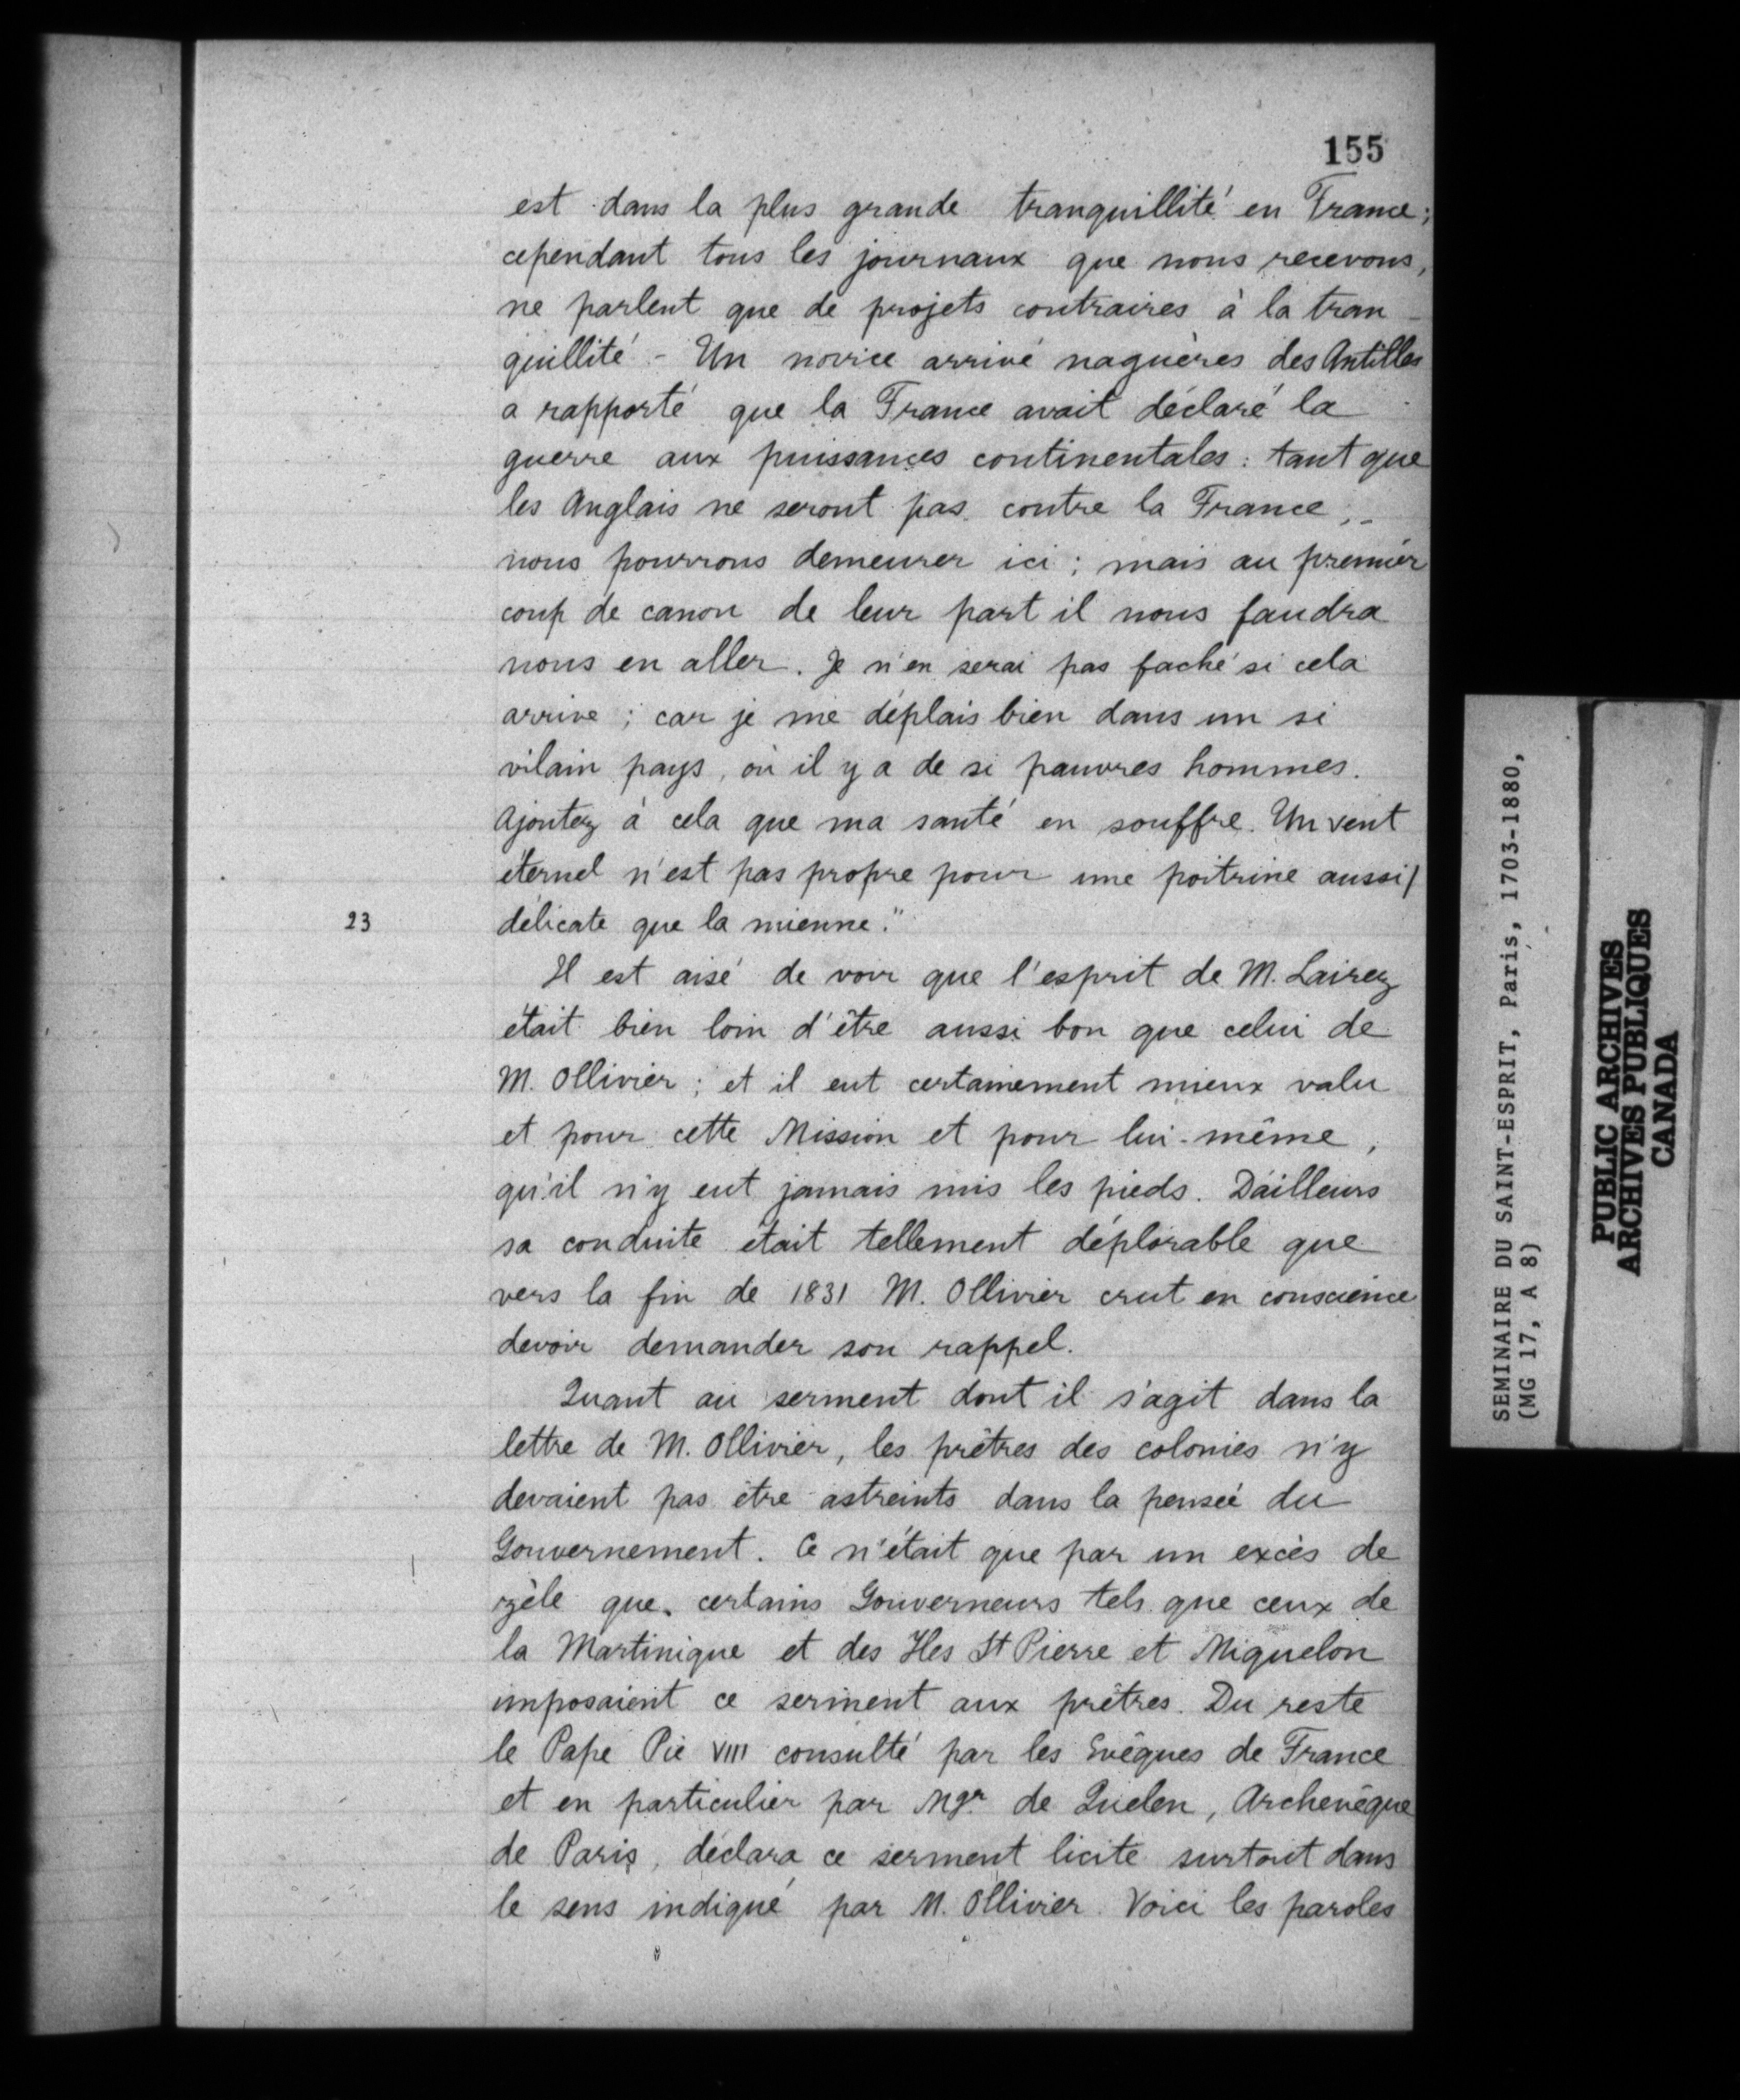 155
est dans la plus grande tranquillité en France;
cependant tous les journaux que nous recevons,
ne parlent que de projets contraires à la tran-
quillité - Un novice arrivé naguères des Antilles
a rapporté que la France avait déclaré la
guerre aux puissances continentales : tant que
les Anglais ne seront pas contre la France,
nous pourrons demeurer ici ; mais au premier
coup de canon de leur part il nous faudra
nous en aller. Je n'en serai pas faché si cela
arrive ; car je me déplais bien dans un si
vilain pays, où il y a de si pauvres hommes.
Ajoutez à cela que ma santé en souffre. Un vent
éternel n'est pas propre pour une poitrine aussi/
23 délicate que la mienne."
Il est aisé de voir que l'esprit de M. Lairez
était bien loin d'être aussi bon que celui de
M. Ollivier ; et il eut certainement mieux valu
et pour cette Mission et pour lui-même,
qu'il n'y eut jamais mis les pieds. D'ailleurs
sa conduite était tellement déplorable que
vers la fin de 1831 M. Ollivier crut en conscience
devoir demander son rappel.
Quant au serment dont il s'agit dans la
lettre de M. Ollivier, les prêtres des colonies n'y
devaient pas être astreints dans la pensée du
Gouvernement. Ce n'était que par un excès de
zèle que certains Gouverneurs tels que ceux de
la Martinique et des Iles St Pierre et Miquelon
imposaient ce serment aux prêtres. Du reste
le Pape Pie VIII consulté par les Evêques de France
et en particulier par Mgr de Quelen, Archevêque
de Paris, déclara ce serment licite surtout dans
le sens indiqué par M. Ollivier. Voici les paroles
SEMINAIRE DU SAINT-ESPRIT, Paris, 1703-1880,
(MG 17, A 8)
PUBLIC ARCHIVES
ARCHIVES PUBLIQUES
CANADA